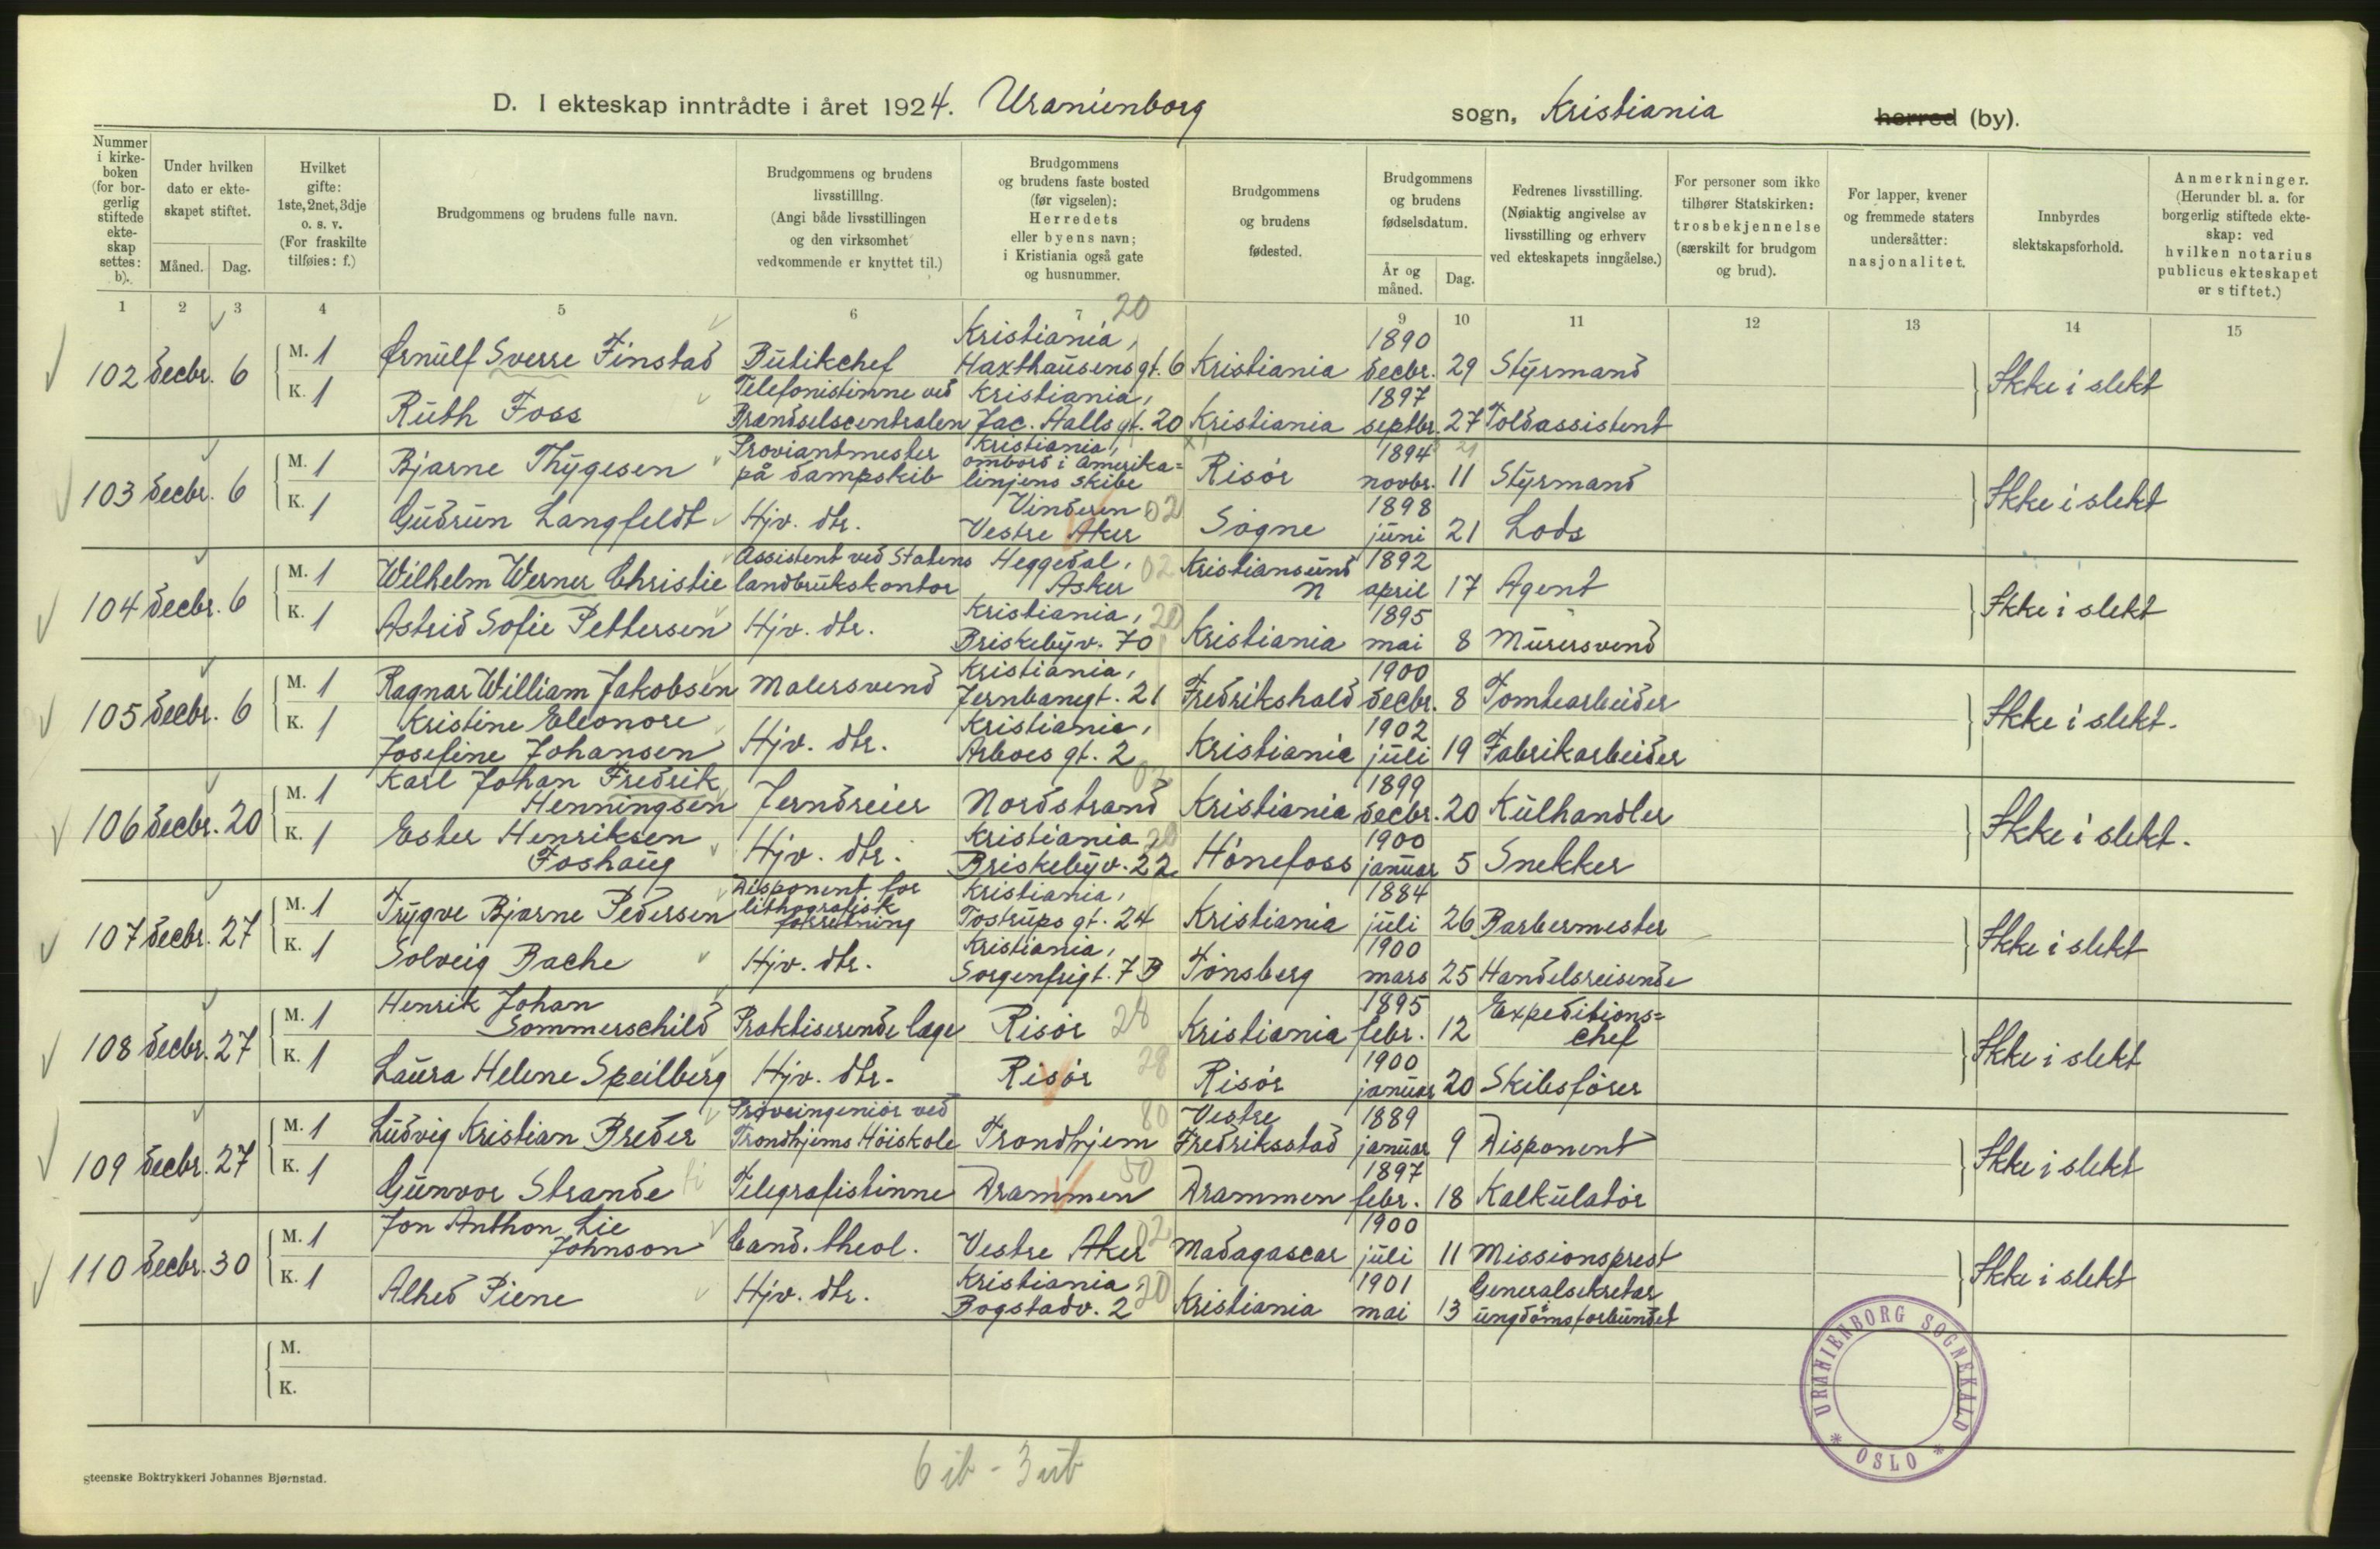 D. I ekteskap inntrådte i året 1924. Uranienborg sogn, Kristiania herred (by).
Nummer i kirke-boken (for bor-gerlig stiftede ekte-skap settes: b).
Under hvilken dato er ekte-skapet stiftet.
Måned. Dag.
Hvilket gifte: 1ste, 2net, 3dje o. s. v. (For fraskilte tilføies: f.)
Brudgommens og brudens fulle navn.
Brudgommens og brudens livsstilllng. (Angi både livsstillingen og den virksomhet vedkommende er knyttet til.)
Brudgommens og brudens faste bosted (før vigselen): Herredets eller byens navn; i Kristiania også gate og husnummer.
Brudgommens og brudens fødested.
Brudgommens og brudens fødselsdatum.
År og måned. Dag.
Fedrenes livsstilling. (Nøiaktig angivelse av livsstilling og erhverv ved ekteskapets inngåelse.)
For personer som ikke tilhører Statskirken: trosbekjennelse (særskilt for brudgom og brud).
For lapper, kvener og fremmede staters undersåtter: nasjonalitet.
Innbyrdes slektskapsforhold.
Anmerkninger. (Herunder bl. a. for borgerlig stiftede ekte-skap: ved hvilken notarius publicus ekteskapet er stiftet.)
1 2 3 4 5 6 7 9 10 11 12 13 14 15
20
102 decbr. 6 M. 1 Ørnulf Sverre Finstad Butikchef Kristiania, Haxthausens gt. 6 Kristiania 1890 decbr. 29 Styrmand Ikke i slekt
K. 1 Ruth Foss Telefonistinne ved Brændselscentralen Kristiania, Jac. Aalls gt. 20 Kristiania 1897 septbr. 27 Toldassistent
103 decbr. 6 M. 1 Bjarne Thygesen Proviantmester på dampskib Kristiania, ombord i Amerika= linjens skibe Risør 1894 novbr. 11 Styrmand Ikke i slekt
K. 1 Gudrun Langfeldt Hjv. dtr. Vinderen Vestre Aker 02 Søgne 1898 juni 21 Lods
104 decbr. 6 M. 1 Wilhelm Werner Christie Assistent ved Statens landbrukskontor Heggedal, Asker 02 Kristiansund N 1892 april 17 Agent Ikke i slekt
K. 1 Astrid Sofie Pettersen Hjv. dtr. Kristiania, Briskebyv. 70 20 Kristiania 1895 mai 8 Murersvend
105 decbr. 6 M. 1 Ragnar William Jakobsen Malersvend Kristiania, Jernbanegt. 21 Fredrikshald 1900 decbr. 8 Tomtearbeider Ikke i slekt.
K. 1 Kristine Eleonore Josefine Johansen Hjv. dtr. Kristiania, Arboes gt. 2 Kristiania 1902 juli 19 Fabrikarbeider
106 decbr. 20 M. 1 Karl Johan Fredrik Henningsen Jerndreier Nordstrand 02 Kristiania 1899 decbr. 20 Kulhandler Ikke i slekt.
K. 1 Ester Henriksen Foshaug Hjv. dtr. Kristiania Briskebyv. 22 20 Hønefoss 1900 januar 5 Snekker
107 decbr. 27 M. 1 Trygve Bjarne Pedersen Disponent for lithografisk forretning Kristiania, Tostrups gt. 24 Kristiania 1884 juli 26 Barbermester Ikke i slekt
K. 1 Solveig Bache Hjv. dtr. Kristiania, Sorgenfrigt. 7 B Tønsberg 1900 mars 25 Handelsreisende
108 decbr. 27 M. 1 Henrik Johan Sommerschild Praktiserende læge Risør 28 Kristiania 1895 febr. 12 Expeditions= chef Ikke i slekt
K. 1 Laura Helene Speilberg Hjv. dtr. Risør 28 Risør 1900 januar 20 Skibsfører
109 decbr. 27 M. 1 Ludvig Kristian Breder Prøveingeniør ved Trondhjems Høiskole Trondhjem 80 Vestre Fredriksstad 1889 januar 9 Disponent Ikke i slekt
K. 1 Gunvor Strande Telegrafistinne Drammen 50 Drammen 1897 febr. 18 Kalkulatør
110 decbr. 30 M. 1 Jon Anthon Lie Johnson Cand. theol. Vestre Aker 02 Madagascar 1900 juli 11 Missionsprest Ikke i slekt
K. 1 Alhed Piene Hjv. dtr. Kristiania, Bogstadv. 2 20 Kristiania 1901 mai 13 Generalsekretær i ungdomsforbundet
M.
K.
URANIENBORG SOGNEKALD * OSLO *
gteenske Boktrykkeri Johannes Bjørnstad.
6 ib - 3 ub